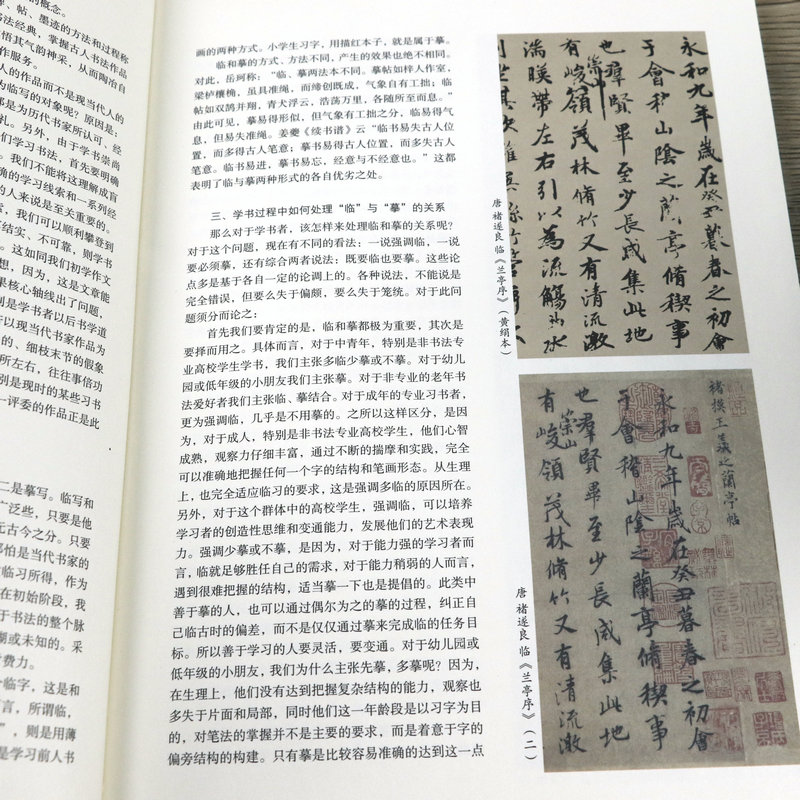 的概念。
碑、帖、墨迹的方法和过程称
法经典，掌握古人书法作品
悟其气韵神采，从而陶冶自
作服务。
人的作品而不是现当代人的
为临写的对象呢？原因是：
都是为历代书家所认可、经
札。另外，由于学书崇尚
们学习书法，首先要明确
。我们不能将这理解成盲
确的学习线索和一系列经
的人来说是至关重要的。
索，我们可以顺利攀登到
不结实、不可靠，则学书
。这如同我们初学作文
想，因为，这是文章能
果核心轴线出了问题，
别是学书者以后书学道
所以现当代书家作品为
的、细枝末节的假象
所左右，往往事倍功
别是现时的某些习书
一评委的作品正是此
二是摹写。临写和
广泛些，只要是他
无古今之分。只要
那怕是当代书家的
临习所得，作为
在初始阶段，我
于书法的整个脉
糊或未知的。采
费力。
个临字，这是和
言，所谓临，
”，则是用薄
是学习前人书
画的两种方式。小学生习字，用描红本子，就是属于摹。
临和摹的方式，方法不同，产生的效果也绝不相同。
对此，岳珂称：“临、摹两法本不同。摹帖如梓人作室，
梁栌榱桷，虽具准绳，而缔创既成，气象自有工拙；临
帖如双鹄并翔，青天浮云，浩荡万里，各随所至而息。”
由此可见，摹易得形似，但气象有工拙之分，临易得气
息，但易失准绳。姜夔《续书谱》云“临书易失古人位
置，而多得古人笔意；摹书易得古人位置，而多失古人
笔意。临书易进，摹书易忘，经意与不经意也。”这都
表明了临与摹两种形式的各自优劣之处。
三、学书过程中如何处理“临”与“摹”的关系
那么对于学书者，该怎样来处理临和摹的关系呢？
对于这个问题，现在有不同的看法：一说强调临，一说
要必须摹，还有综合两者说法；既要临也要摹。这些论
点多是基于各自一定的论调上的。各种说法，不能说是
完全错误，但要么失于偏颇，要么失于笼统。对于此问
题须分而论之：
首先我们要肯定的是，临和摹都极为重要，其次是
要择而用之。具体而言，对于中青年，特别是非书法专
业高校学生学书，我们主张多临少摹或不摹。对于幼儿
园或低年级的小朋友我们主张摹。对于非专业的老年书
法爱好者我们主张临、摹结合。对于成年的专业习书者，
更为强调临，几乎是不用摹的。之所以这样区分，是因
为，对于成人，特别是非书法专业高校学生，他们心智
成熟，观察力仔细丰富，通过不断的揣摩和实践，完全
可以准确地把握任何一个字的结构和笔画形态。从生理
上，也完全适应临习的要求，这是强调多临的原因所在。
另外，对于这个群体中的高校学生，强调临，可以培养
学习者的创造性思维和变通能力，发展他们的艺术表现
力。强调少摹或不摹，是因为，对于能力强的学习者而
言，临就足够胜任自己的需求，对于能力稍弱的人而言，
遇到很难把握的结构，适当摹一下也是提倡的。此类中
善于摹的人，也可以通过偶尔为之的摹的过程，纠正自
己临古时的偏差，而不是仅仅通过摹来完成临的任务目
标。所以善于学习的人要灵活，要变通。对于幼儿园或
低年级的小朋友，我们为什么主张先摹，多摹呢？因为，
在生理上，他们没有达到把握复杂结构的能力，观察也
多失于片面和局部，同时他们这一年龄段是以习字为目
的，对笔法的掌握并不是主要的要求，而是着意于字的
偏旁结构的构建。只有摹是比较容易准确的达到这一点
永和九年歲在癸丑暮春之初會
于會稽山陰之蘭亭脩稧事
也羣賢畢至少長咸集此地
有崇山峻嶺茂林脩竹又有清流激
湍暎帶左右引以為流觴曲水
唐 褚遂良 临《兰亭序》（黄绢本）
褚模王羲之蘭亭帖
永和九年歲在癸丑暮春之初會
于會稽山陰之蘭亭脩稧事
也羣賢畢至少長咸集此地
有崇山峻領茂林脩竹又有清流激
唐 褚遂良 临《兰亭序》（二）